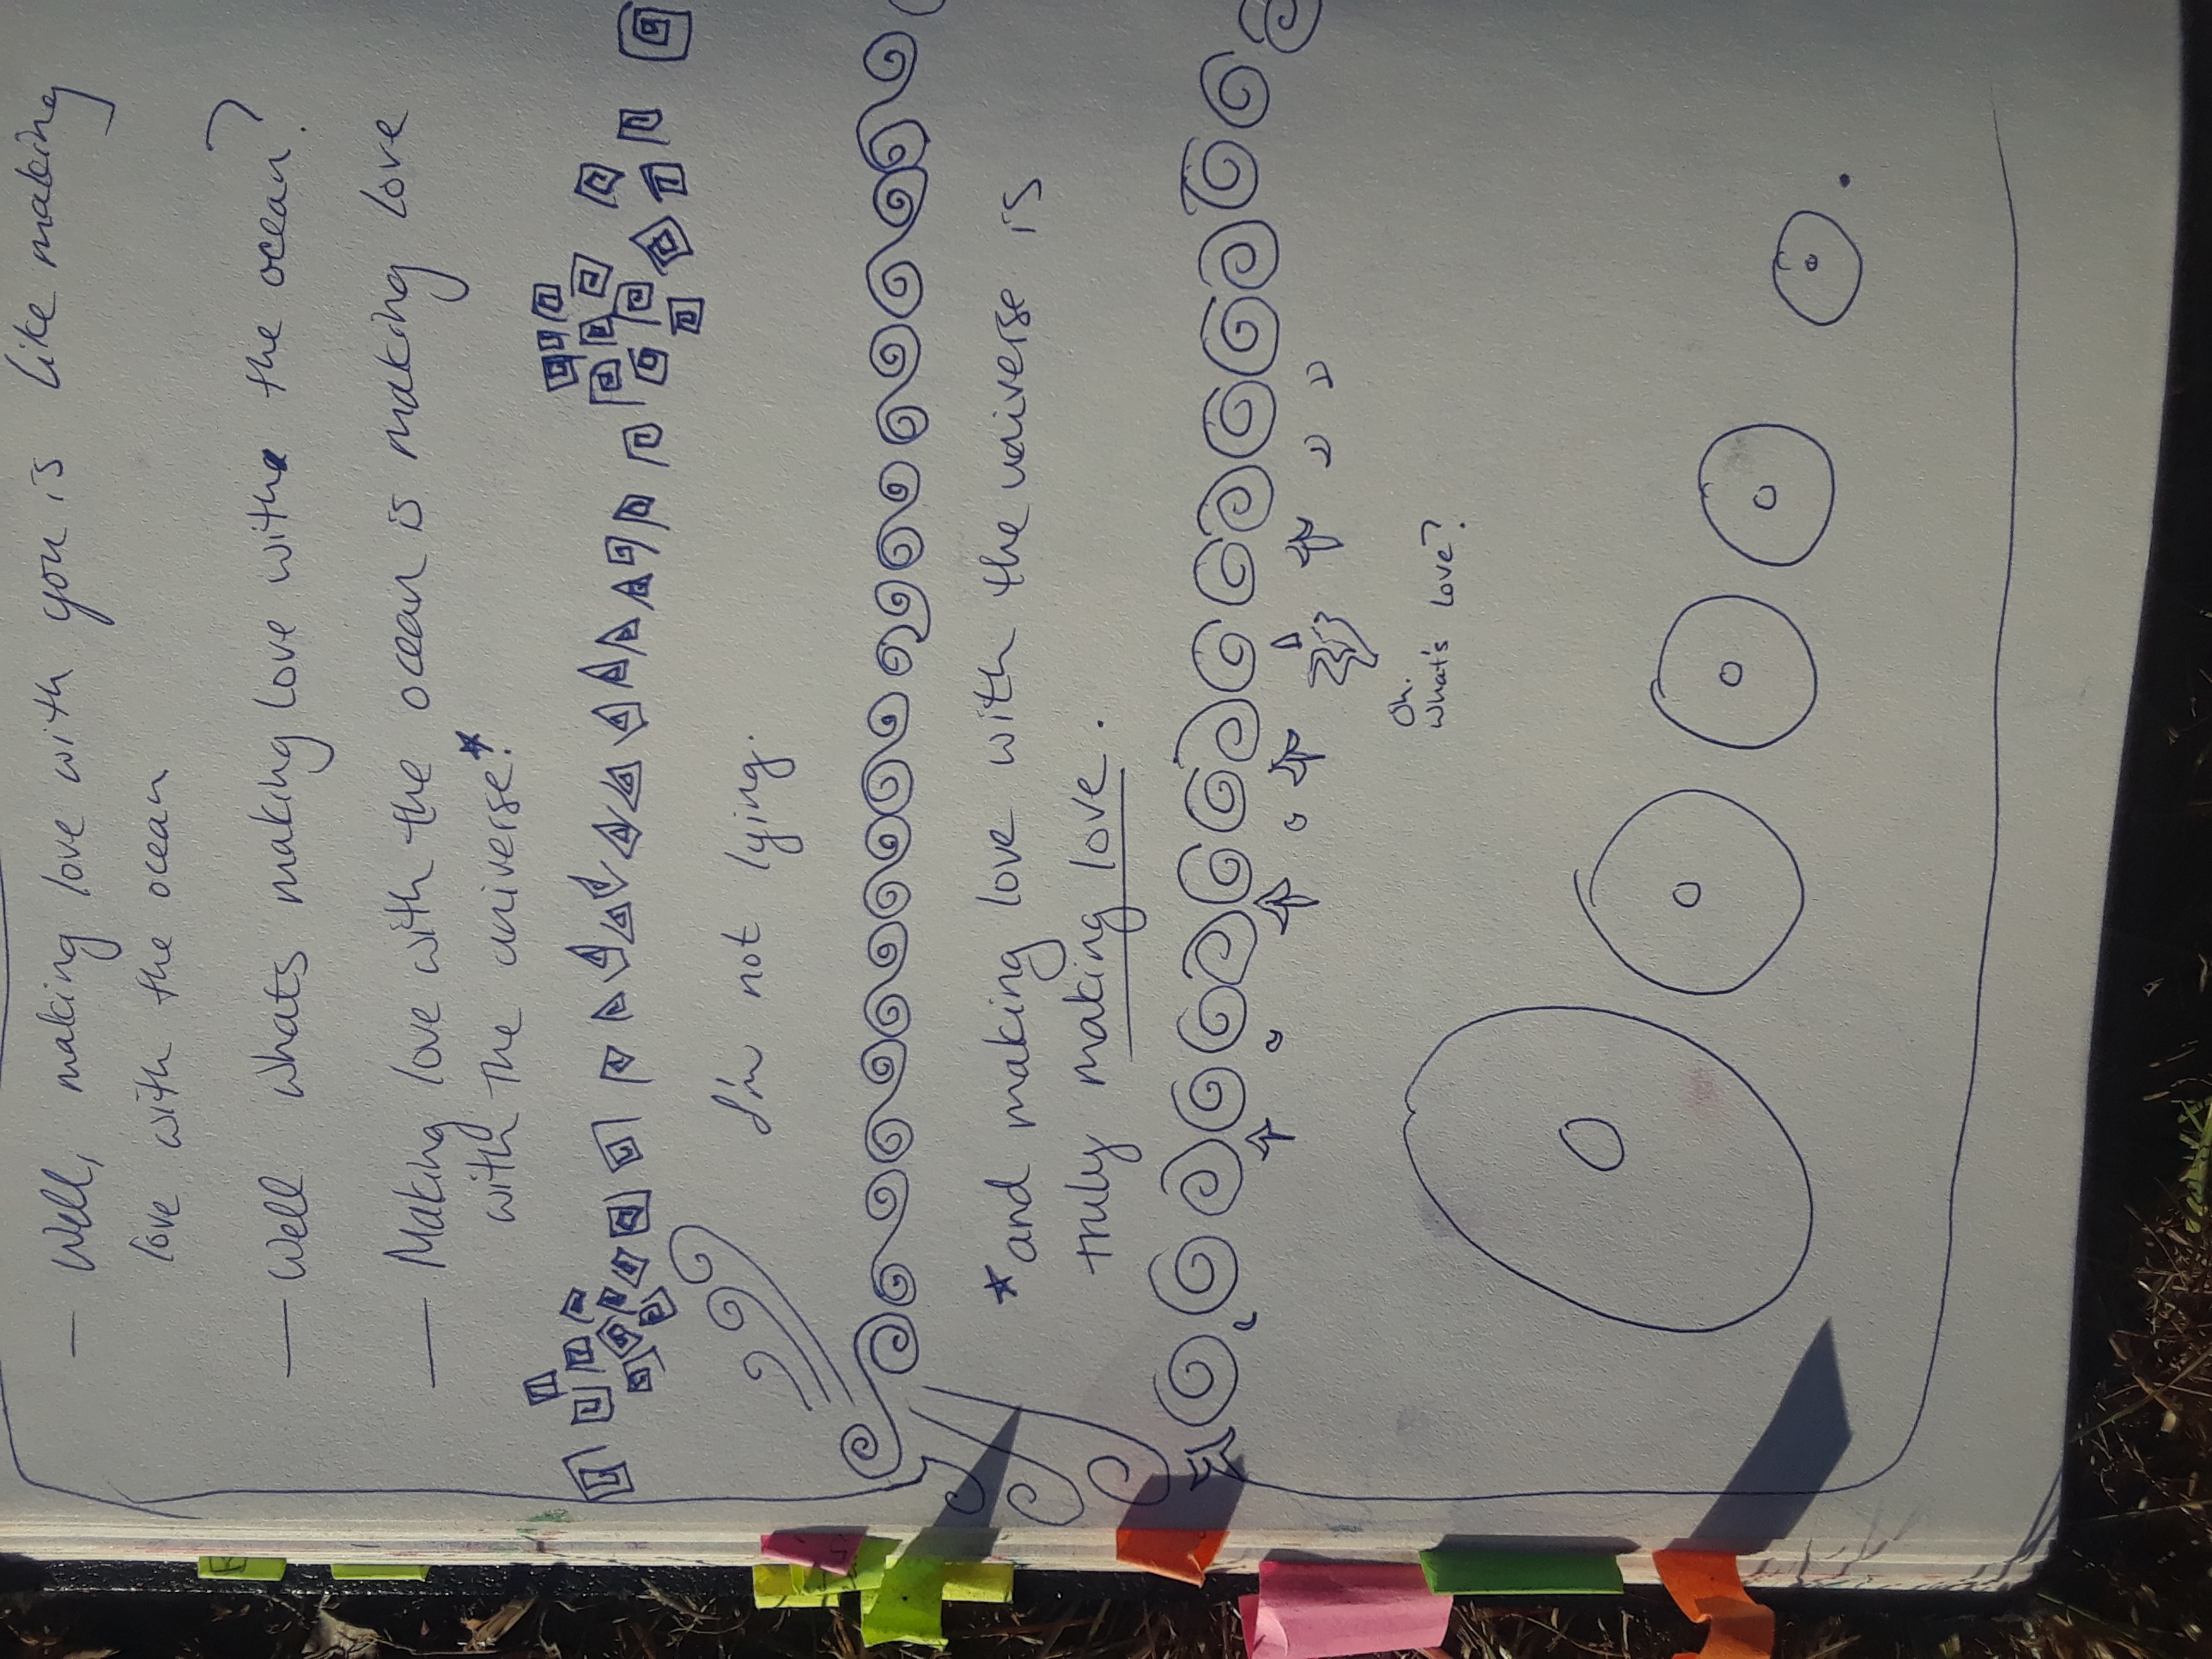 — Well, making love with you is like making
love with the ocean
— Well whats making love with the ocean?
— Making love with the ocean is making love
with the universe.*
I'm not lying.
*and making love with the universe is
truly making love.
Oh.
What's love?